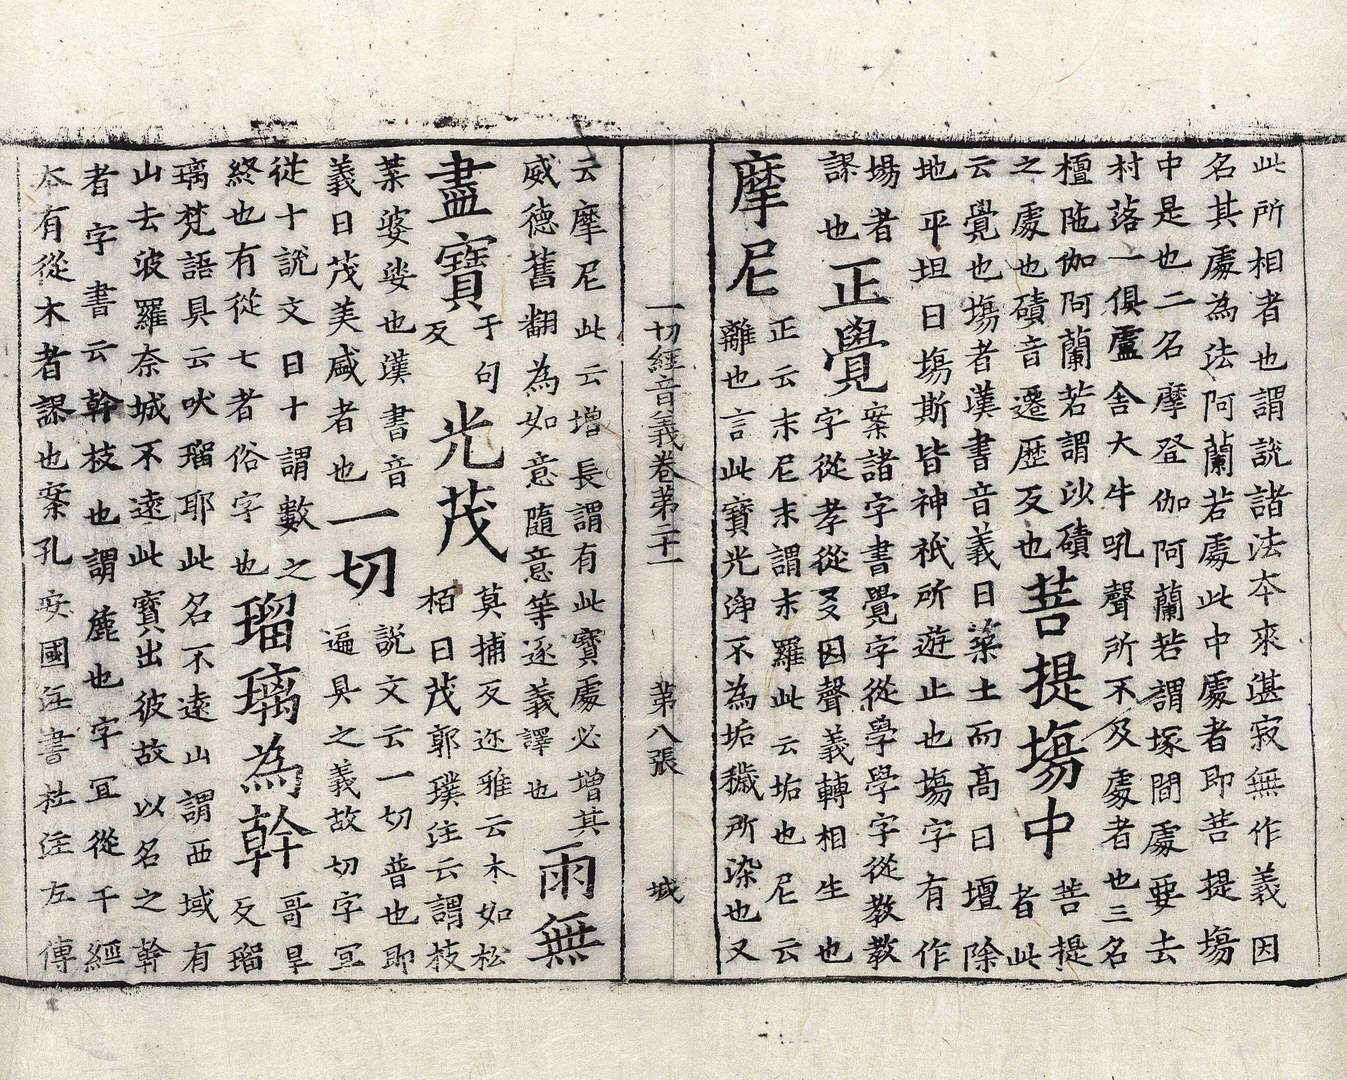 此所相者也謂說諸法夲來湛寂無作義因
名其處為法阿蘭若處此中處者即菩提塲
中是也二名摩登伽阿蘭若謂塚間處要去
村落一俱盧舍大牛吼聲所不及處者也三名
檀陁伽阿蘭若謂沙磧
之處也磧音遷歷反也
菩提塲中
菩提
者此
云覺也塲者漢書音義曰築土而高曰壇除
地平坦曰塲斯皆神祇所遊止也塲字有作
場者
謬也
正覺
案諸字書覺字從學學字從教教
字從孝從爻因聲義轉相生也
摩尼
正云末尼末謂末羅此云垢也尼云
離也言此寶光淨不為垢穢所染也又
一切經音義卷第二十一
第八張
城
云摩尼此云增長謂有此寶處必增其
威德舊翻為如意隨意等逐義譯也
雨無
盡寶
于句
反
光茂
莫捕反迩雅云木如松
栢曰茂郭璞注云謂枝
葉婆娑也漢書音
義曰茂美咸者也
一切
說文云一切普也即
遍具之義故切字宜
從十說文曰十謂數之
終也有從七者俗字也
瑠璃為幹
哥旱
反瑠
璃梵語具云吠瑠耶此名不遠山謂西域有
山去波羅奈城不遠此寶出彼故以名之幹
者字書云幹枝也謂麁也字宜從干經
夲有從木者謬也案孔安國注書杜注左傳